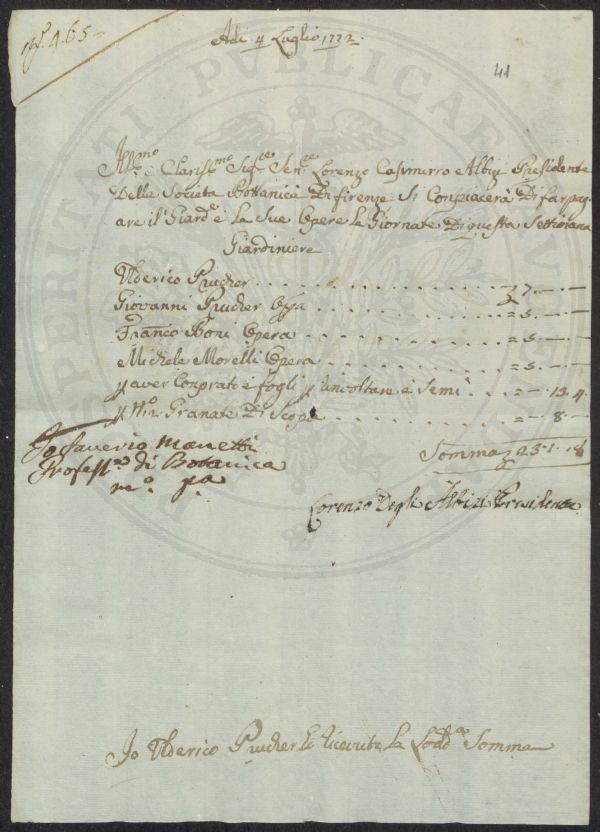 N.° 465
Adì 4 Luglio 1772.
41
Ill.mo e Claris.mo Sig.re Sen.re Lorenzo Casimirro Albizi Presidente
Della Societa Bottanica Di firenze Si Conpiacerà Di far pag
are il Giard.e e La Sue Opere Le Giornate Di questa Settimana
Giardiniere
Ulderico Prucher . . . . . . . . . . 7. — . —
Giovanni Prucher Opa . . . . . . = 5. — . —
Franco Boni Opera . . . . . . = 5. — . —
Michele Morelli Opera . . . . . . = 5. — . —
p aver Conprato e fogli p Rinvoltare e Semi . = — . 13. 4
p N.o 2 Granate Di Scopa . . . . . . = — . 8. —
Somma 23. 1.
Io Saverio Manetti
Profess.re di Botanica
m.o p.a
Lorenzo Degli Albizi Presidente
Io Ulderico Prucher ho ricevuto La Sod.a Somma
PUBLICAE